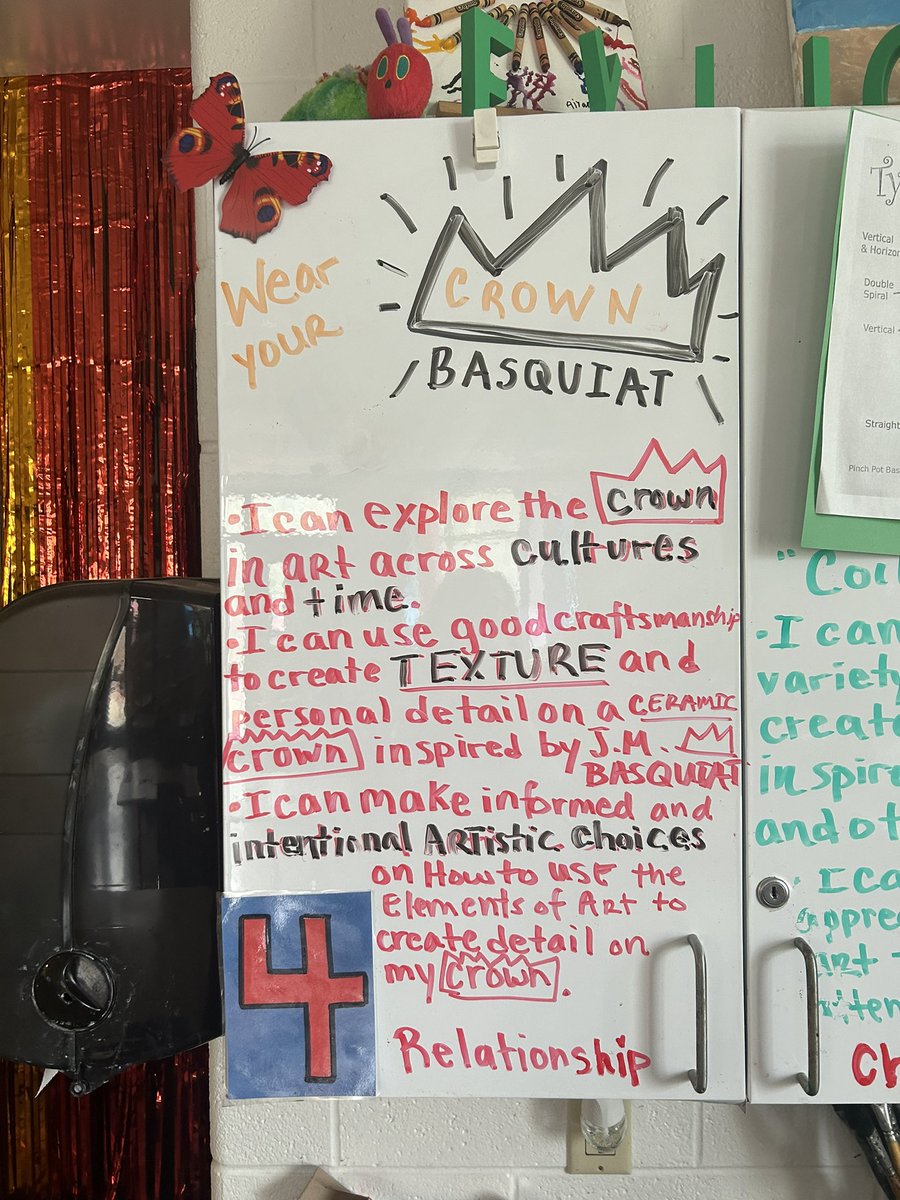 Wear
YOUR
CROWN
BASQUIAT
•I can explore the crown
in art across cultures
and time.
•I can use good craftsmanship
to create TEXTURE and
personal detail on a CERAMIC
crown inspired by J.M.
BASQUIAT
•I can make informed and
intentional ARTistic Choices
on How to use the
Elements of Art to
create detail on
my crown.
4
Relationship
Vertical
Double
Spiral
Vertical
Straight
Pinch Pot
•I can
variety
create
and